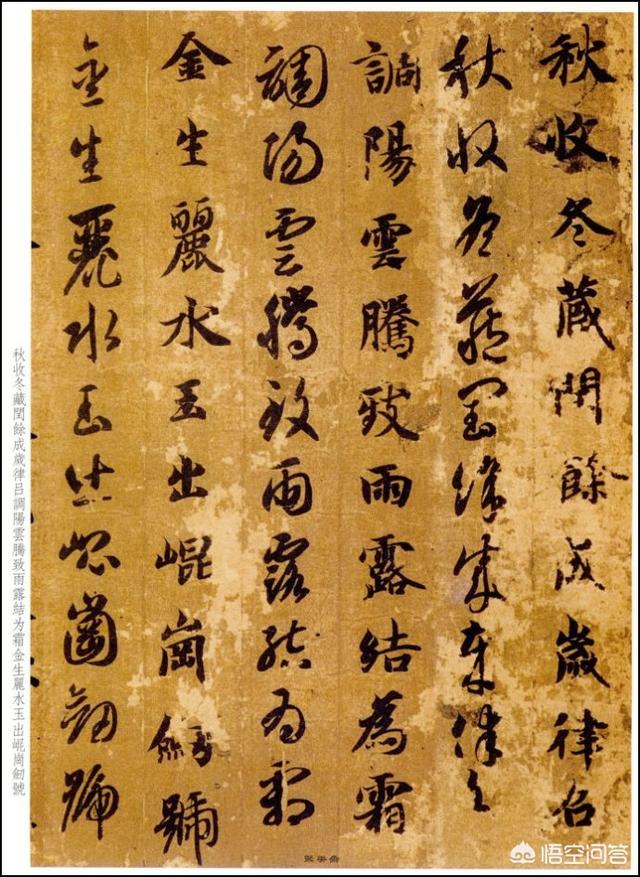 秋收冬蔵閏餘成歲律召
秋收冬蔵閏餘成歲律召
調陽雲騰致雨露結為霜
調陽雲騰致雨露結為霜
金生麗水玉出崐崗劒號
金生麗水玉出崐崗劒號
秋收冬藏閏餘成歲律吕調陽雲騰致雨露結为霜金生麗水玉出崐崗劒號
悟空问答